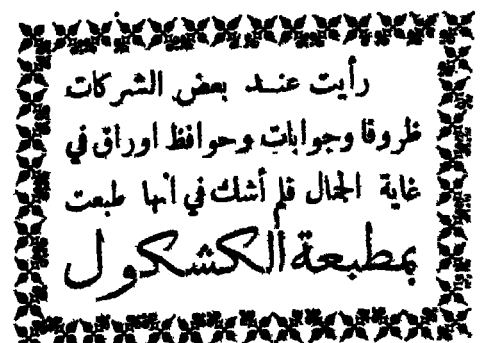 رأيت عند بعض الشركات
ظروفا وجوابات وحوافظ اوراق في
غاية الجمال فلم أشك في انها طبعت
بمطبعة الكشكول